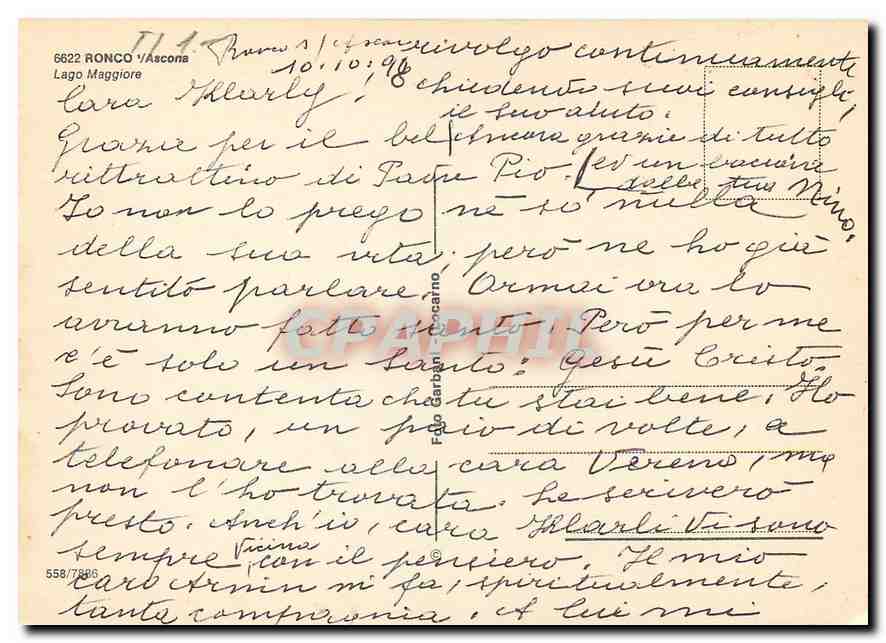 6622 RONCO s/Ascona
Lago Maggiore
II 1.
Ronco s/Ascona
10.10.98
Cara Klarly!
Grazie per il bel
rittrattino di Padre Pio.
Io non lo prego nè sò nulla
della sua vita, però ne ho già
sentito parlare. Ormai ora lo
avranno fatto santo. Però per me
c'è solo un Santo: Gesù Cristo.
Sono contenta che tu stai bene. Ho
provato, un paio di volte, a
telefonare alla cara Verena, ma
non l'ho trovata. Le scriverò
presto. Anch'io, cara Klarli Vi sono
sempre vicina con il pensiero. Il mio
caro Armin mi fa, spiritualmente,
tanta compagnia. A lui mi
rivolgo continuamente
chiedendo suoi consigli,
il suo aiuto.
Ancora grazie di tutto
ed un bacione
dalla tua Nino.
Foto Garbani - Locarno
©
558/7886
CPAPHIL